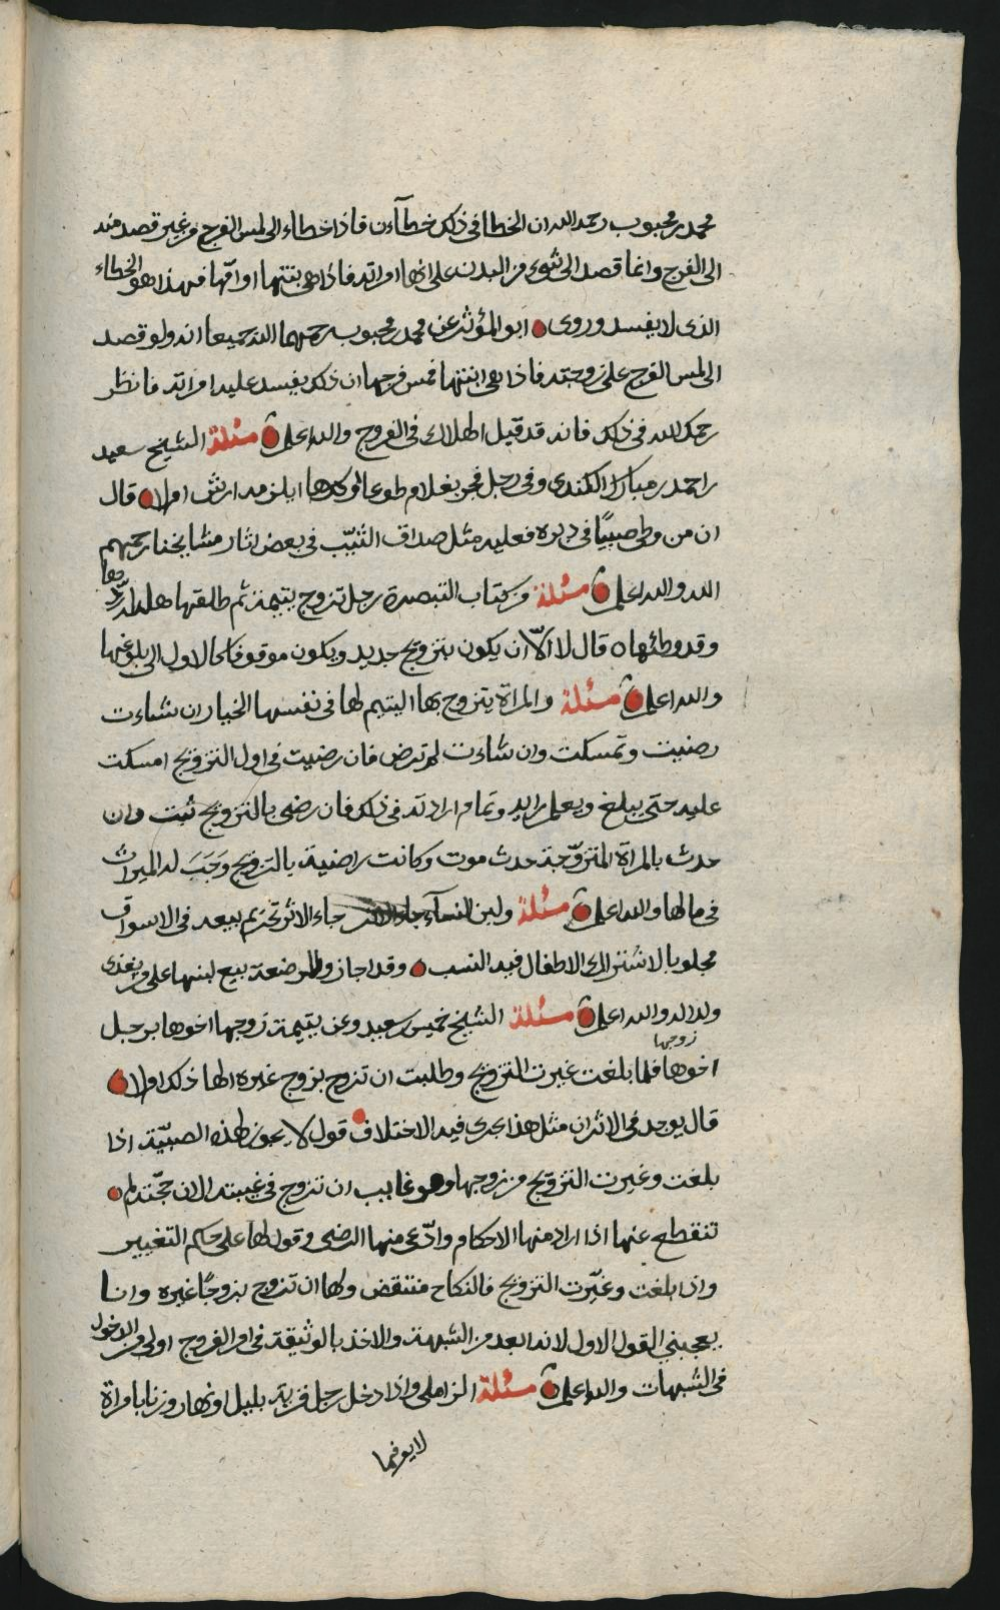 محمد بن محبوب رحمه الله ان الخطا في ذلك خطآءن فاذا خطاء الى لمس الفرج من غير قصد منه
الى الفرج وانما قصد الى شيء من البدن على انها امراته فاذا هي بنتها او امها فهذا هو الخطاء
الذي لا يفسد وروى ابو المؤثر عن محمد بن محبوب رحمهما الله جميعا انه ولو قصد
الى لمس الفرج على زوجته فاذا هي ابنتها فمس فرجها ان ذلك يفسد عليه امراته فانظر
رحمك الله في ذلك فانه قد قيل الهلاك في الفروج والله اعلم مسئلة الشيخ سعيد
بن احمد بن مبارك الكندي وفي رجل فجر بغلام طوعا او كرها ايلزمه ارش ام لا قال
ان من وطي صبيًا في دبره فعليه مثل صداق الثيّب في بعض اثار مشايخنا رحمهم
الله والله اعلم مسئلة من كتاب التبصرة رجل تزوج بيتيمة ثم طلقها هل له ردّها
وقد وطئها ه قال لا الاّ ان يكون بتزويج جديد ويكون موقوفا كالاول الى بلوغها
والله اعلم مسئلة والمراة يتزوج بها اليتيم لها في نفسها الخيار ان شاءت
رضيت وتمسكت وان شاءت لم ترض فان رضيت في اول التزويج امسكت
عليه حتى يبلغ ويعلم رايه وتمام ارادته في ذلك فان رضي بالتزويج ثبت وان
حدث بالمراة المتزوّجة حدث موت وكانت راضية بالتزويج وَجَبَ له الميراث
في مالها والله اعلم مسئلة ولبن النسآء جاء الاثر تحريم بيعه في الاسواق
مجلوبا لاشتراك الاطفال فيه النسب وقد اجازوا للمرضعة بيع لبنها على من يغذى
ولدا له والله اعلم مسئلة الشيخ خميس بن سعيد وعن يتيمة زوجها اخوها برجل
زوجها
اخوها فلما بلغت غيرت التزويج وطلبت ان تزوج بزوج غيره الها ذلك ام لا
قال يوجد في الاثر ان مثل هذا يجرى فيه الاختلاف قول لا يجوز لهذه الصبيّة اذا
بلغت وغيرت التزويج من زوجها وهو غايب ان تزوج في غيبته الان حجّته لم
تنقطع عنها اذا اراد منها الاحكام وادّعى منها الرضى وقول لها على حكم التغيير
واذا بلغت وغيّرت التزويج فالنكاح منتقض ولها ان تزوج بزوجًا غيره وانا
يعجبني القول الاول لانه ابعد من الشبهة والاخذ بالوثيقة في امر الفروج اولى من الدخول
في الشبهات والله اعلم مسئلة الزاملي واذا دخل رجل قرية بليل او نهار وزنا بامراة
لا يعرفها